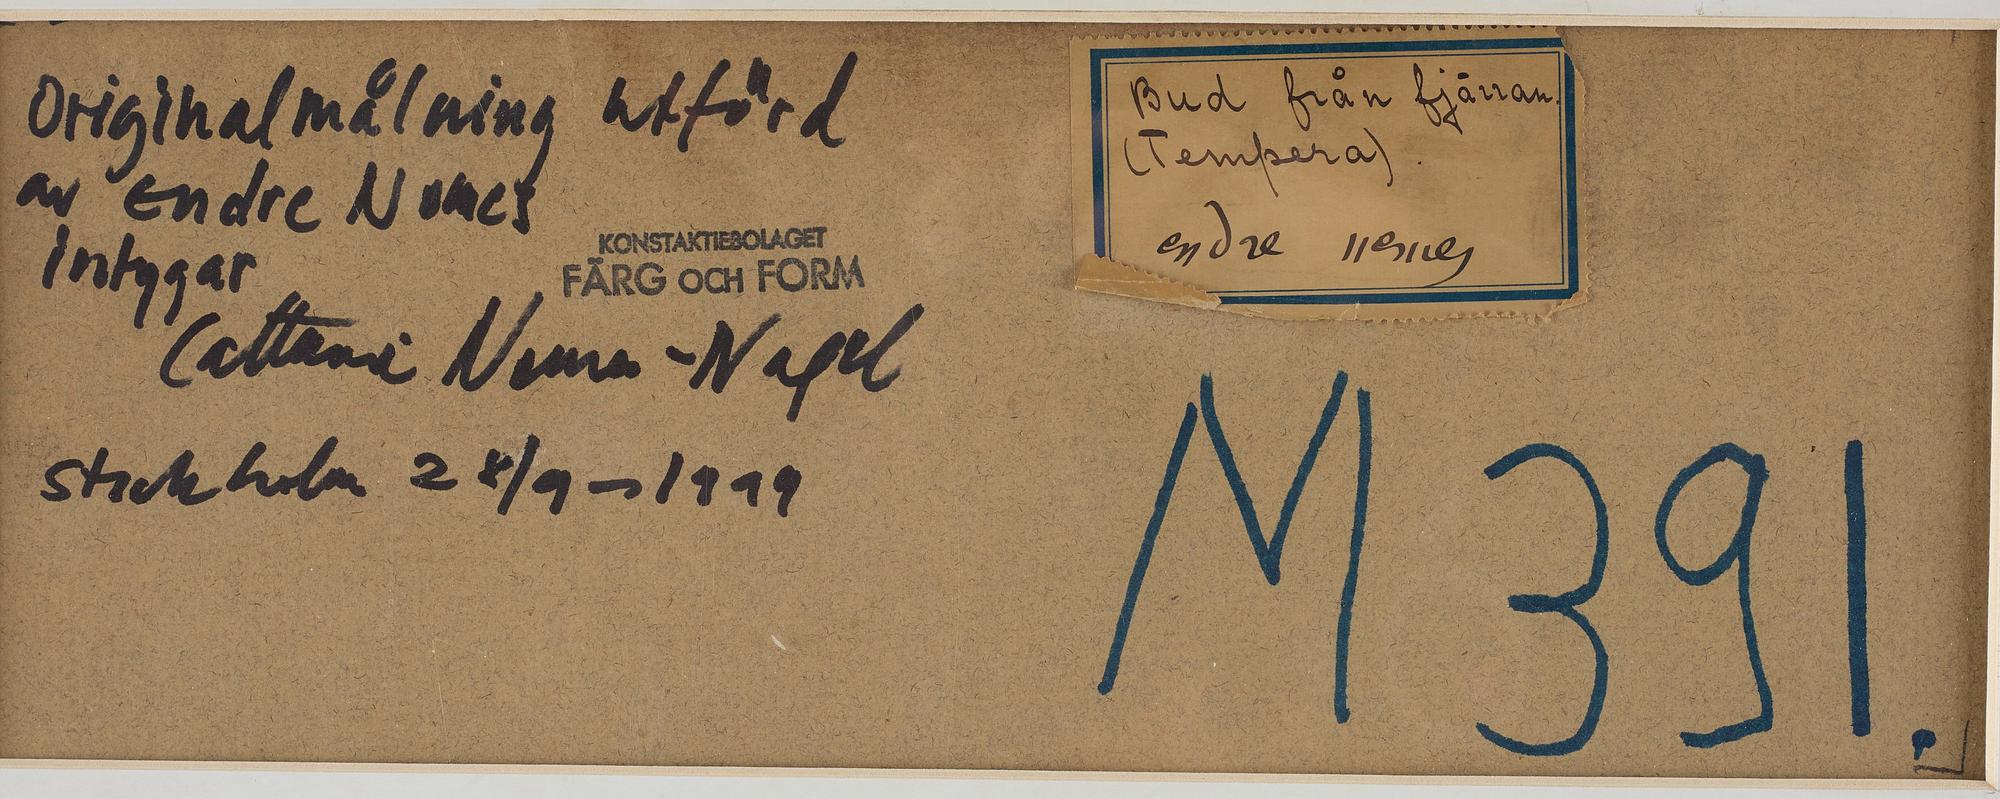 Originalmålning utförd
av Endre Nemes
intygar
Nemes-Nagel
Stockholm 28/9-1999
KONSTAKTIEBOLAGET
FÄRG OCH FORM
Bud från fjärran.
(Tempera).
endre nemes
M 391.